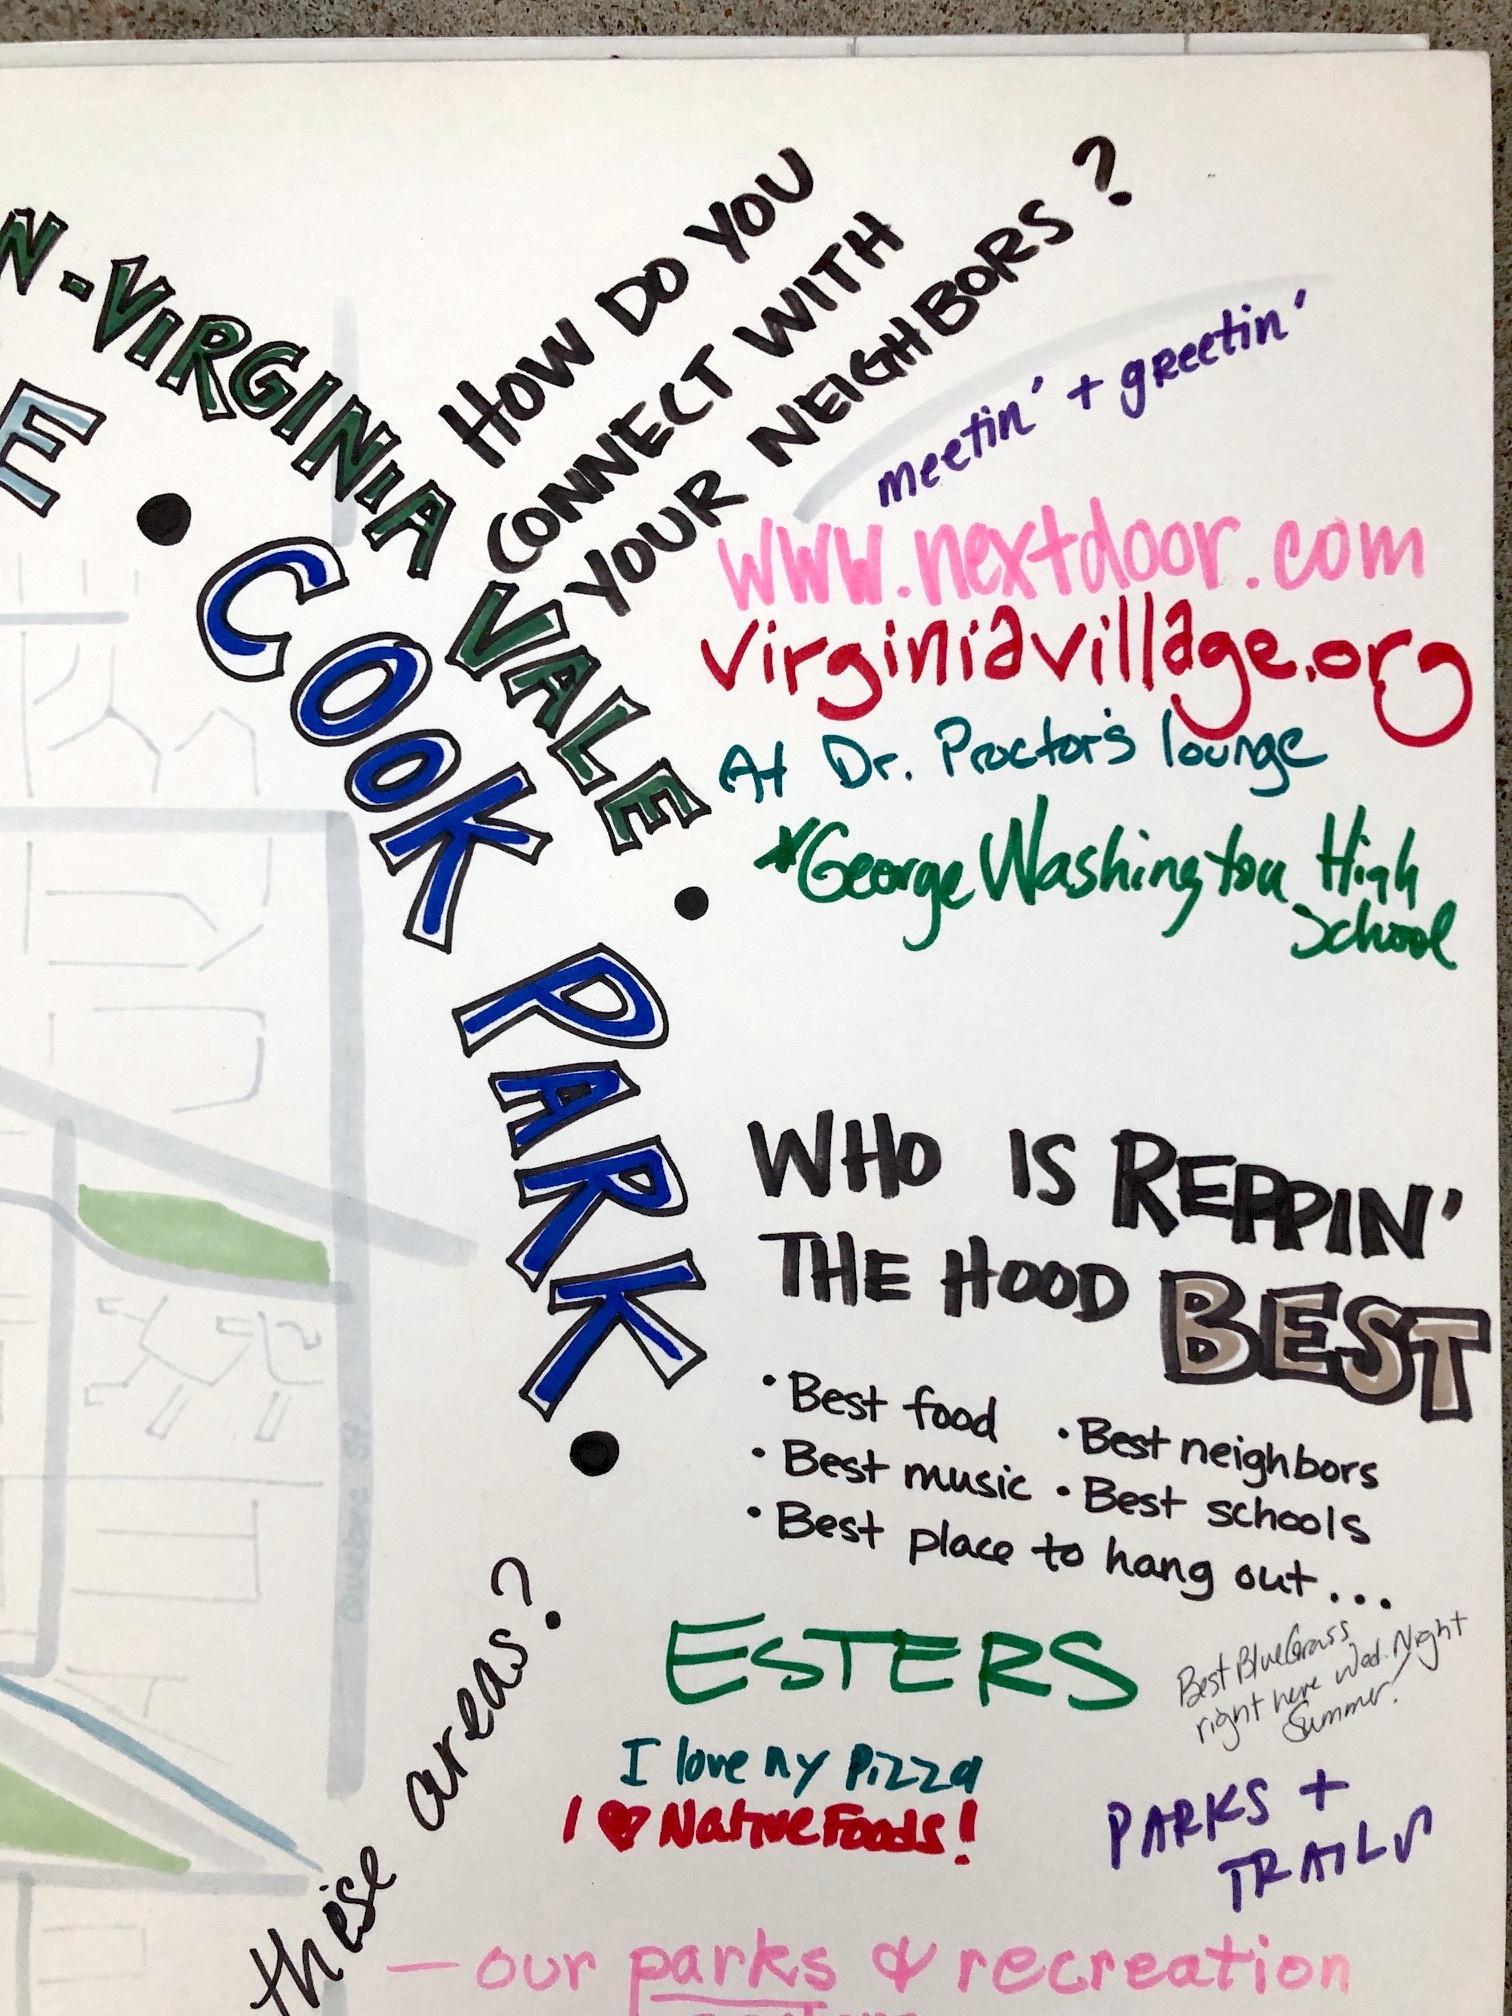 N-VIRGINIA VALE •
E • COOK PARK •
HOW DO YOU
CONNECT WITH
YOUR NEIGHBORS?
meetin' + greetin'
www.nextdoor.com
virginiavillage.org
At Dr. Proctor's lounge
*George Washington High
School
WHO IS REPPIN'
THE HOOD BEST
• Best food • Best neighbors
• Best music • Best schools
• Best place to hang out...
ESTERS
Best BlueGrass
right here Wed. Night
Summer!
I love my Pizza
I ♥ Native Foods!
PARKS +
TRAILS
these areas?
— our parks & recreation